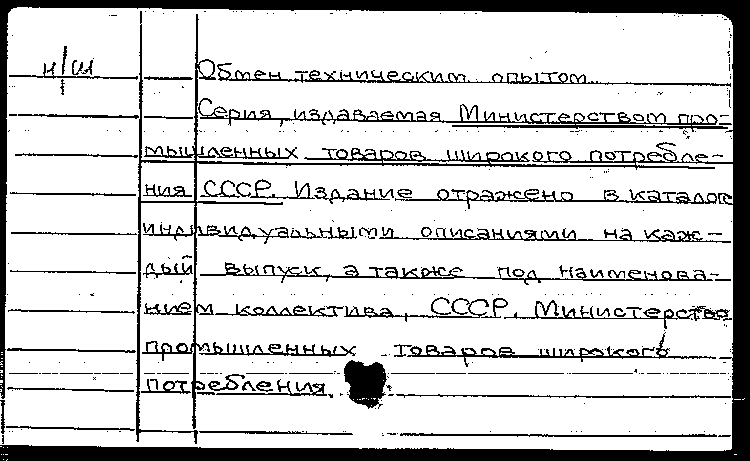 н/ш
Обмен техническим опытом
Серия, издаваемая Министерством про-
мышленных товаров широкого потребле-
ния СССР. Издание отражено в каталог
индивидуальными описаниями на каж-
дый выпуск, а также под наименова-
нием коллектива, СССР. Министерство
промышленных товаров широкого
потребления.